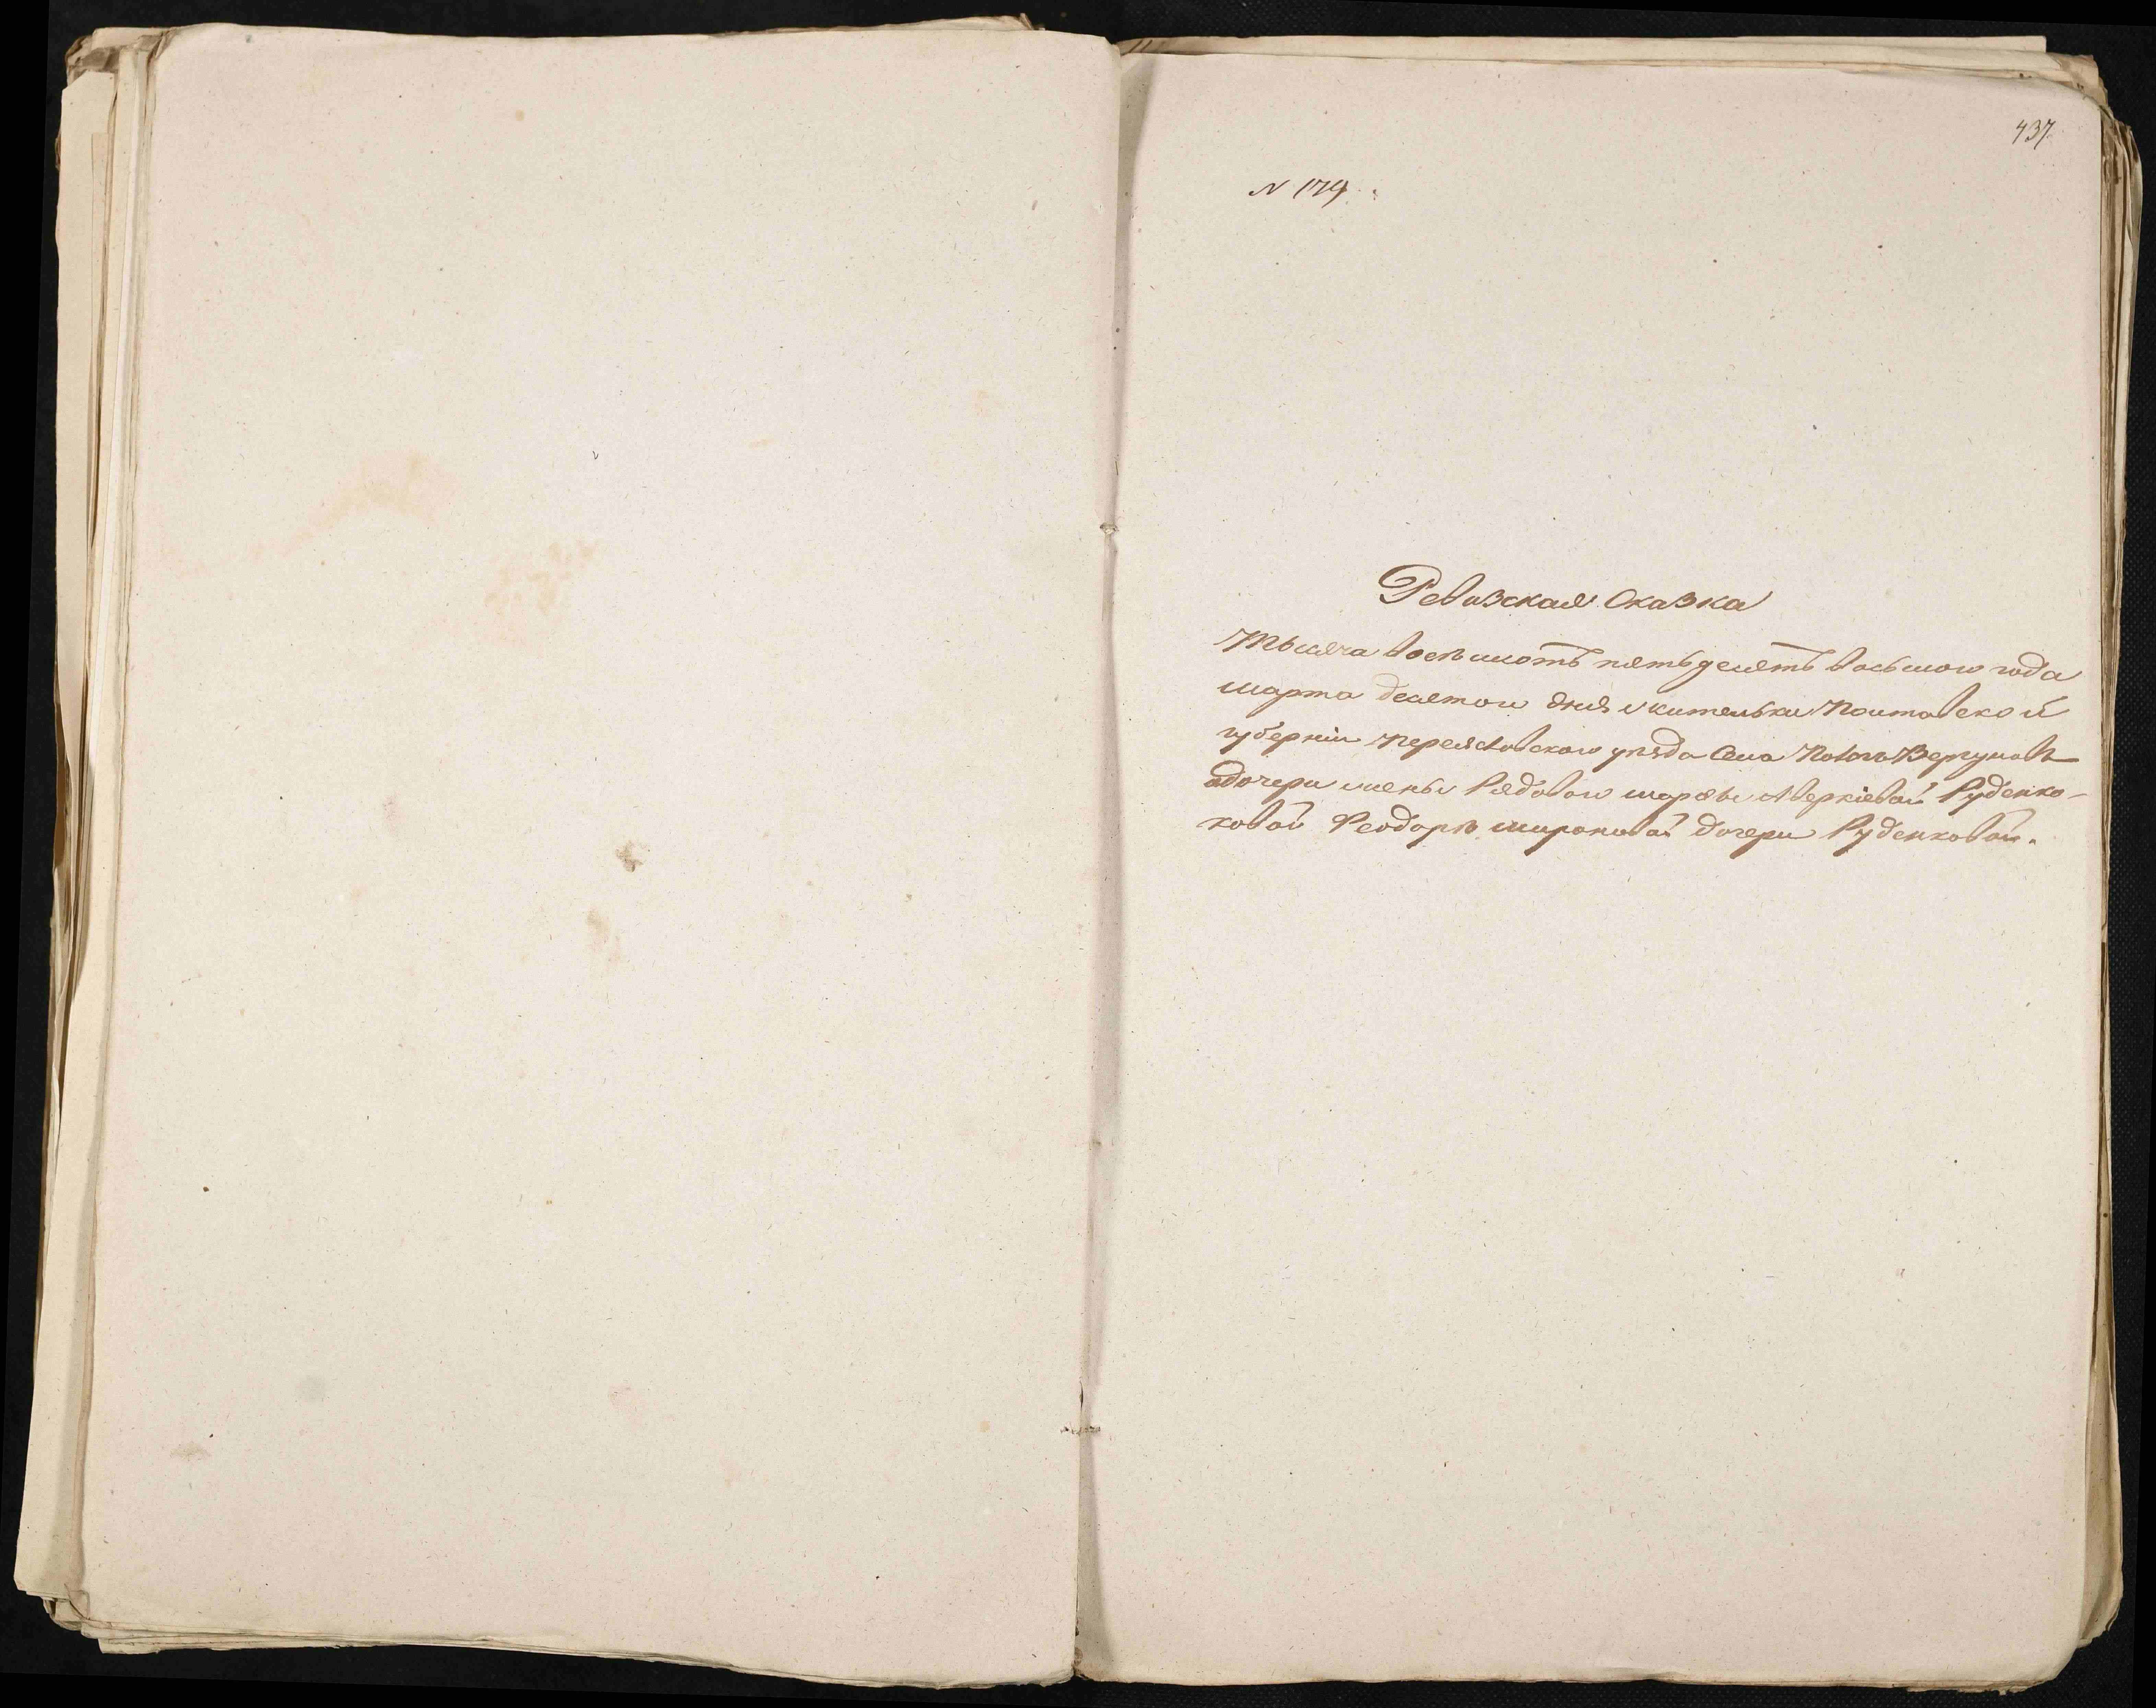 437
N 179.
Ревизская Сказка
Тысяча восѣмсотъ пятьдесятъ восьмого года
марта десятого дня жительки Полтавской
губерніи Переяславского уѣзда Села
адочери жены Рядового марѳы Аверкіевой Руденко-
ковой Ѳеодорѣ мироновой дочери Руденковой.